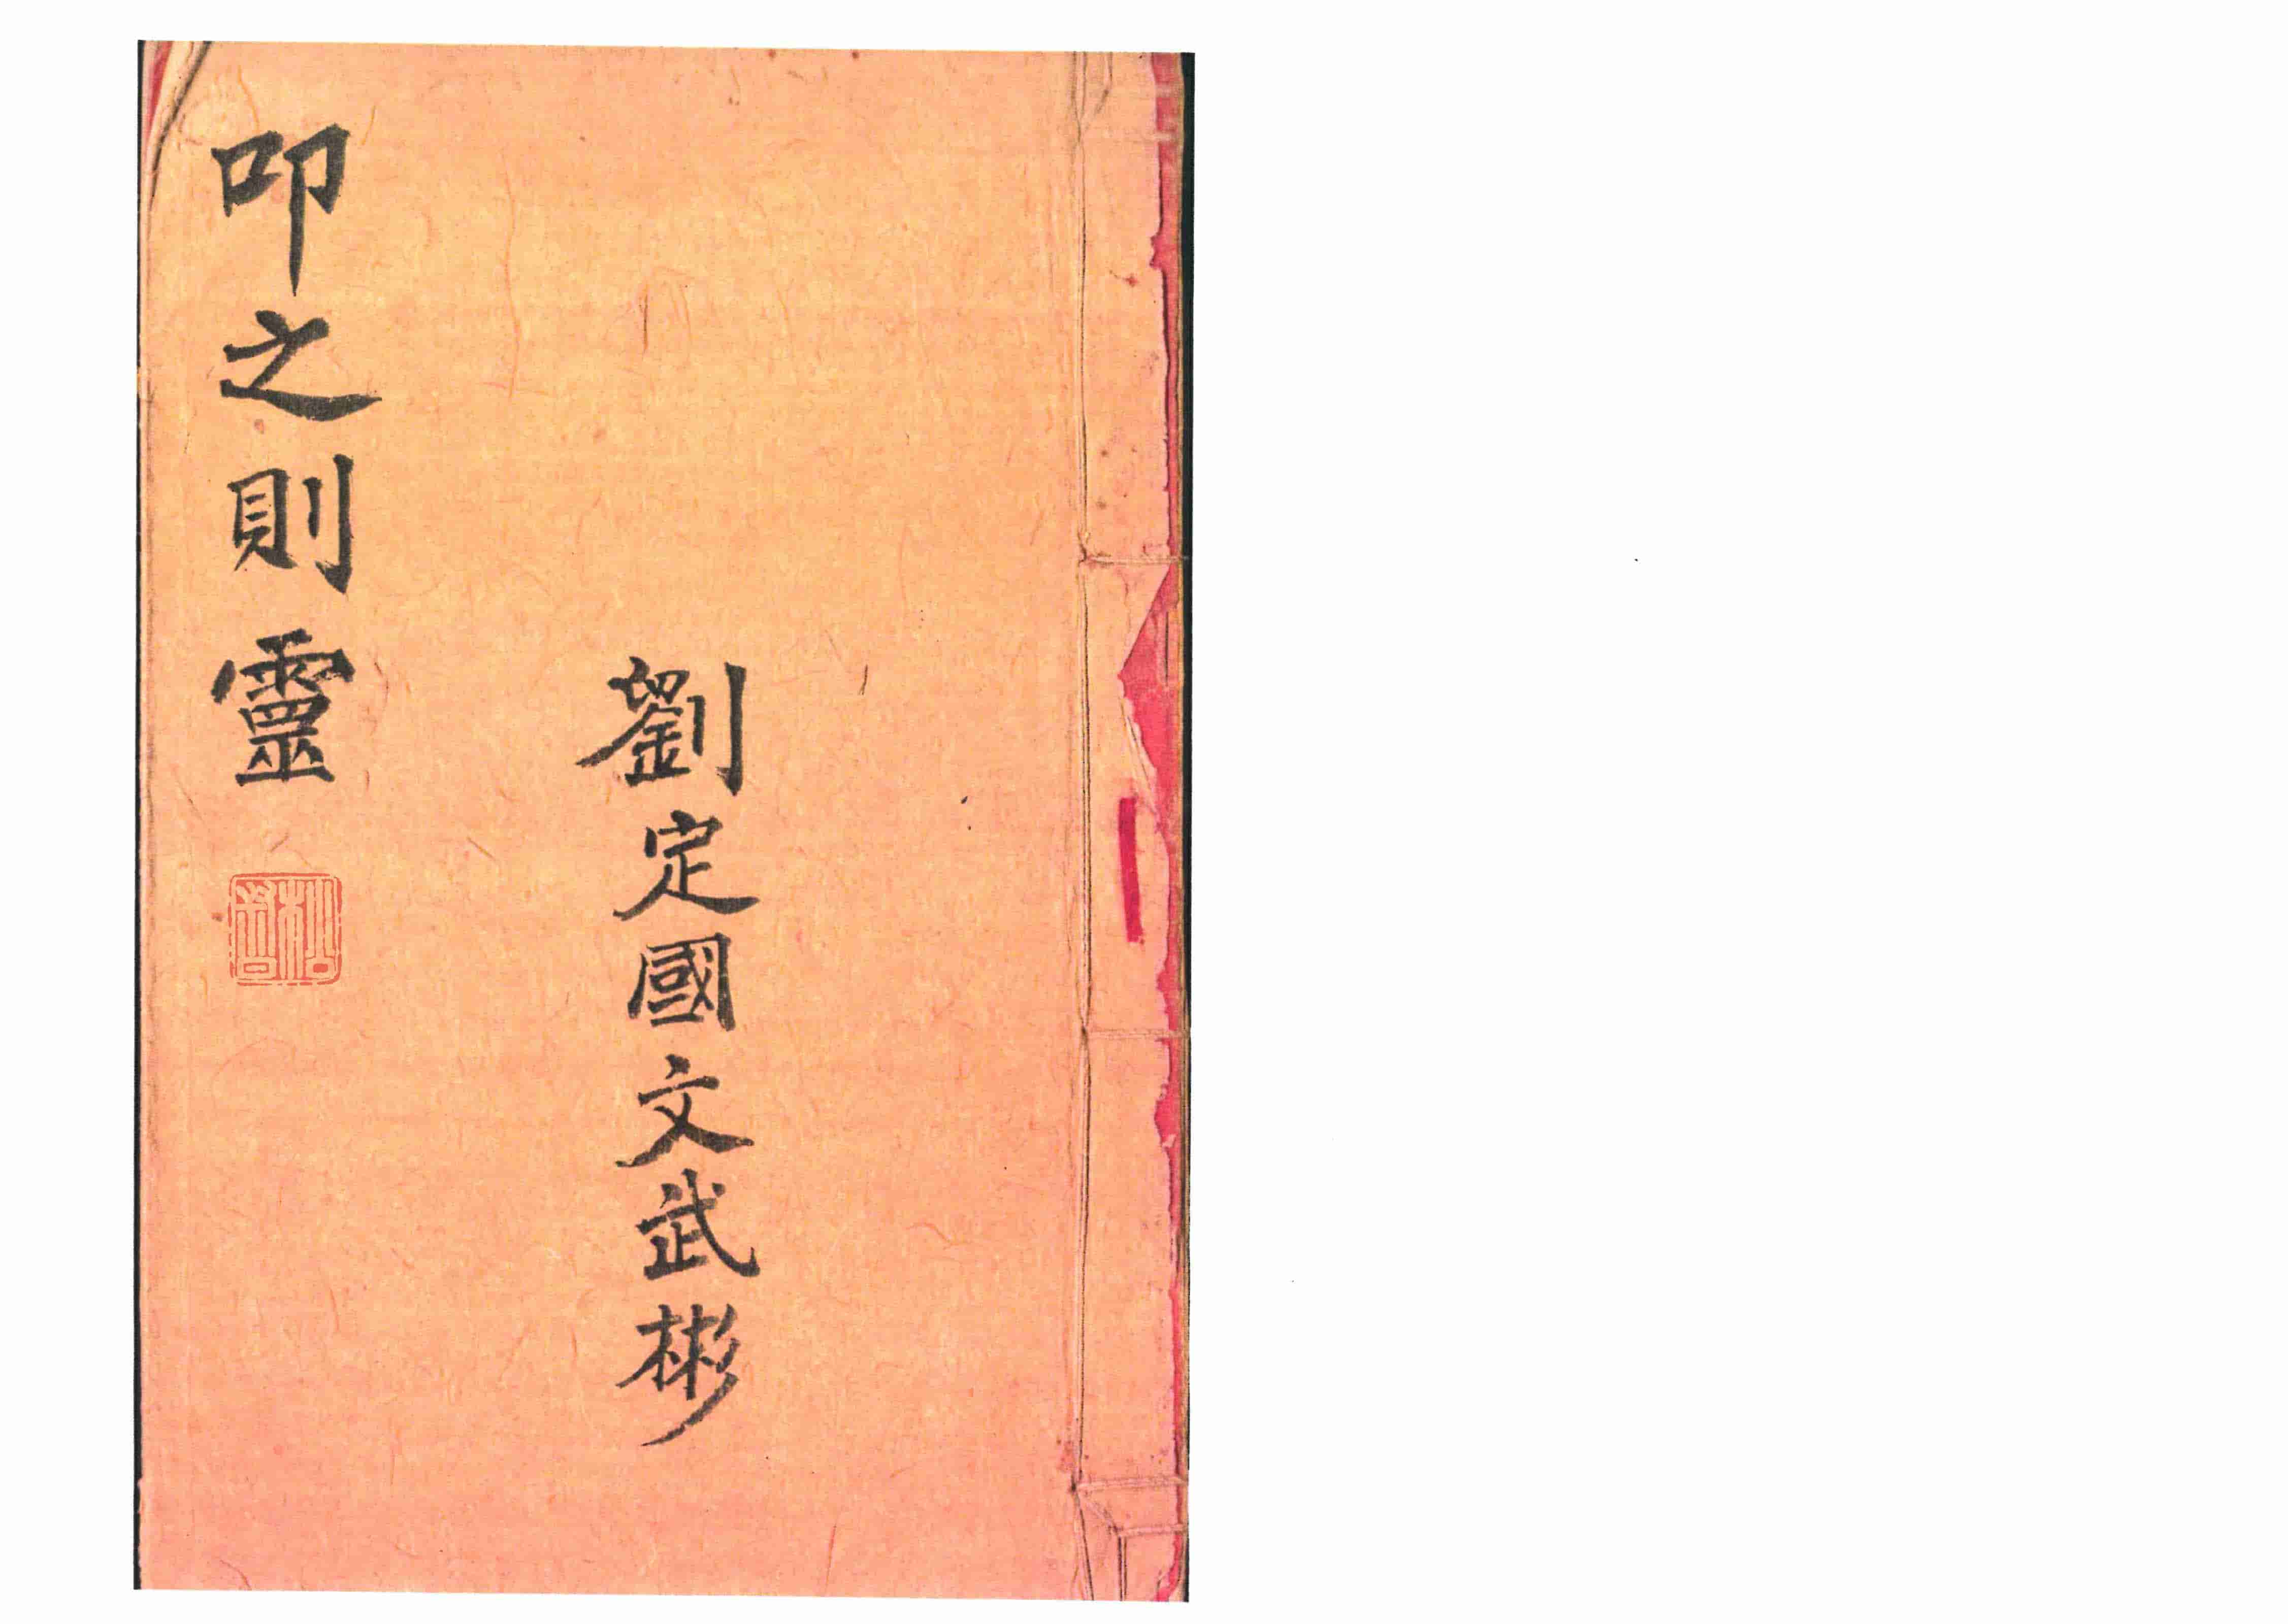 劉定國文武彬
叩之則靈